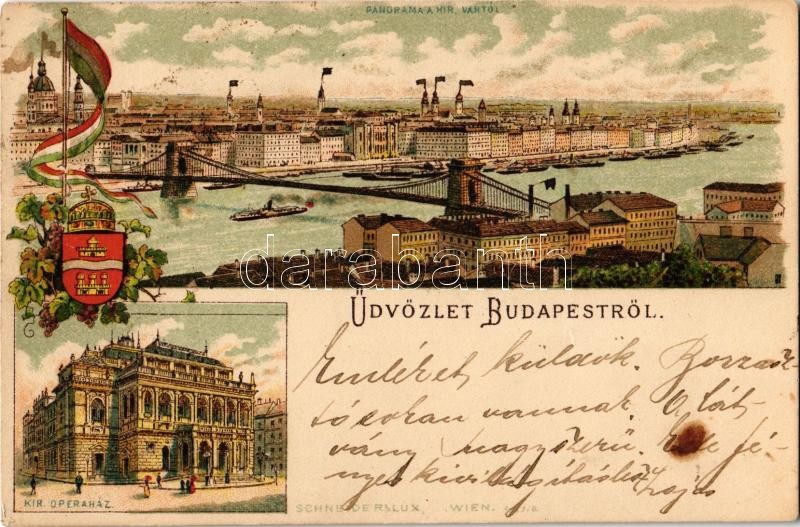 PANORAMA A KIR. VÁRTÓL
darabanth
ÜDVÖZLET BUDAPESTRÖL.
Emléket küldök. Borzasz-
tó sokan vannak. A lát-
vány nagyszerű. Este fé-
nyes kivilágítás lesz
KIR. OPERAHÁZ.
SCHNEIDER & LUX, WIEN.